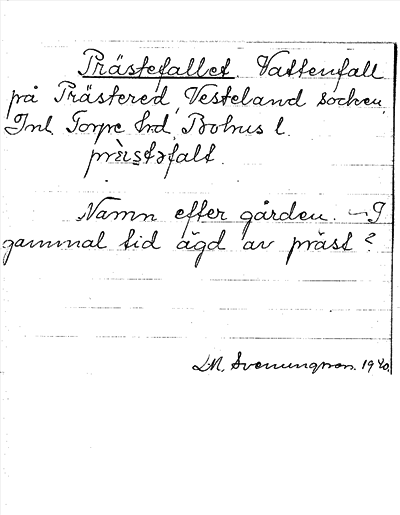 Prästefallet. Vattenfall
på Prästered, Vesteland socken,
Inl. Torpe hrd, Bohus l.
prä̀istəfalt.
Namn efter gården. – I
gammal tid ägd av präst?
LM. Svenungsson. 1940.